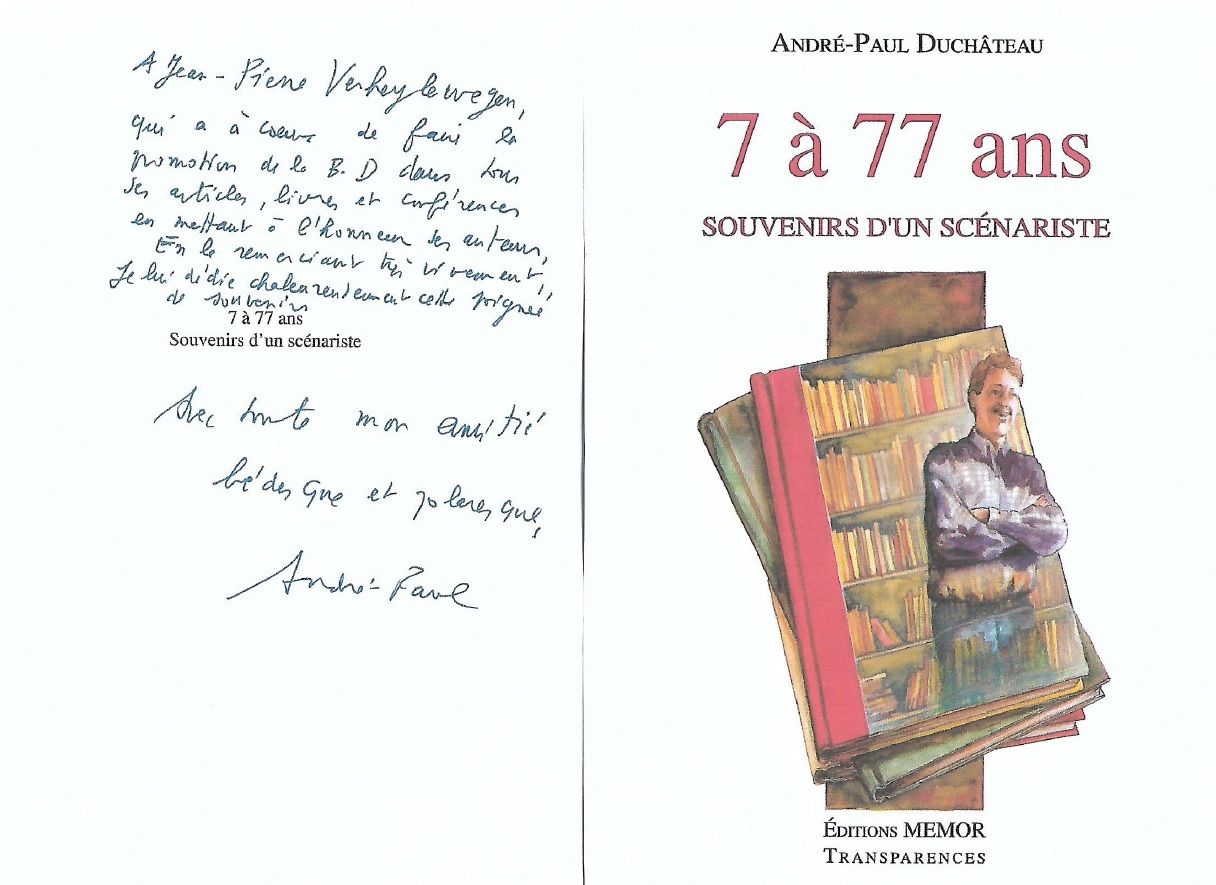 A Jean-Pierre Verheylewegen,
qui a à coeur de faire la
promotion de la B.D dans tous
ses articles, livres et conférences
en mettant à l'honneur ses auteurs,
En le remerciant très vivement,
Je lui dédie chaleureusement cette poignée
de souvenirs
7 à 77 ans
Souvenirs d'un scénariste
Avec toute mon amitié
bédesque et polaresque,
André-Paul
ANDRÉ-PAUL DUCHÂTEAU
7 à 77 ans
SOUVENIRS D'UN SCÉNARISTE
ÉDITIONS MEMOR
TRANSPARENCES